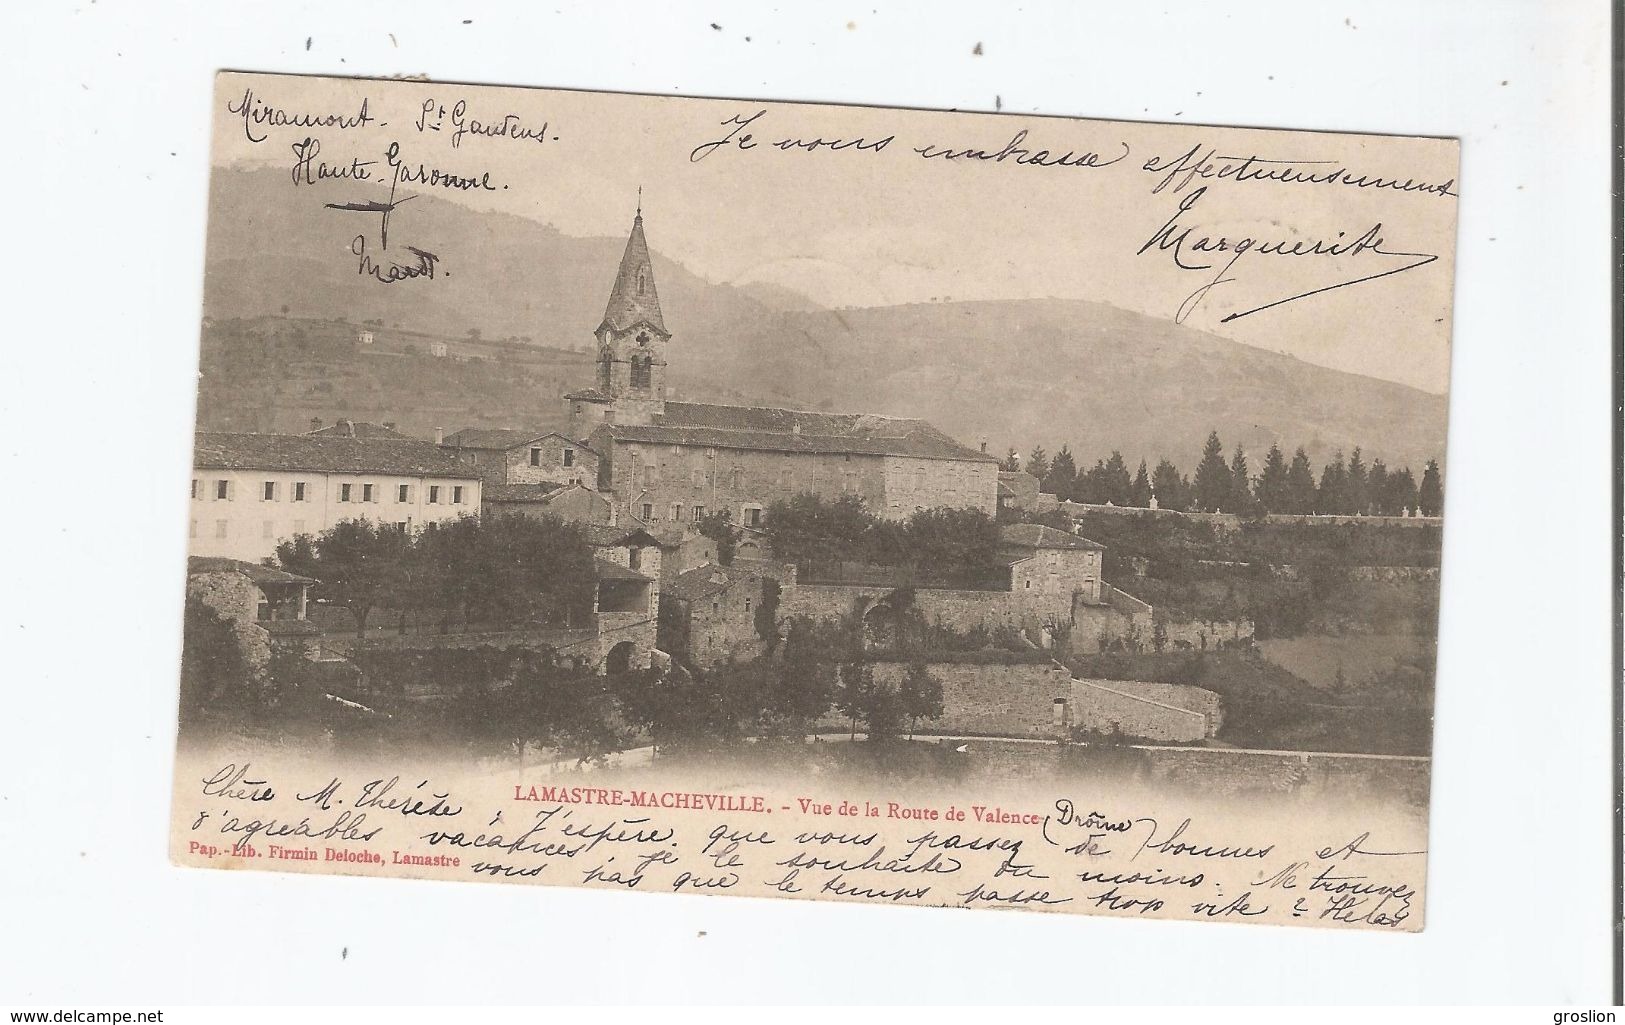 Miramont. St Gaudens.
Haute-Garonne.
Mardi.
Je vous embrasse affectueusement
Marguerite
LAMASTRE-MACHEVILLE. - Vue de la Route de Valence (Drôme)
Chère M. Thérèse, J'espère que vous passez de bonnes et
d'agréables vacances, je le souhaite du moins. Ne trouvez
Pap.-Lib. Firmin Deloche, Lamastre
vous pas que le temps passe trop vite ? Hélas
www.delcampe.net
groslion